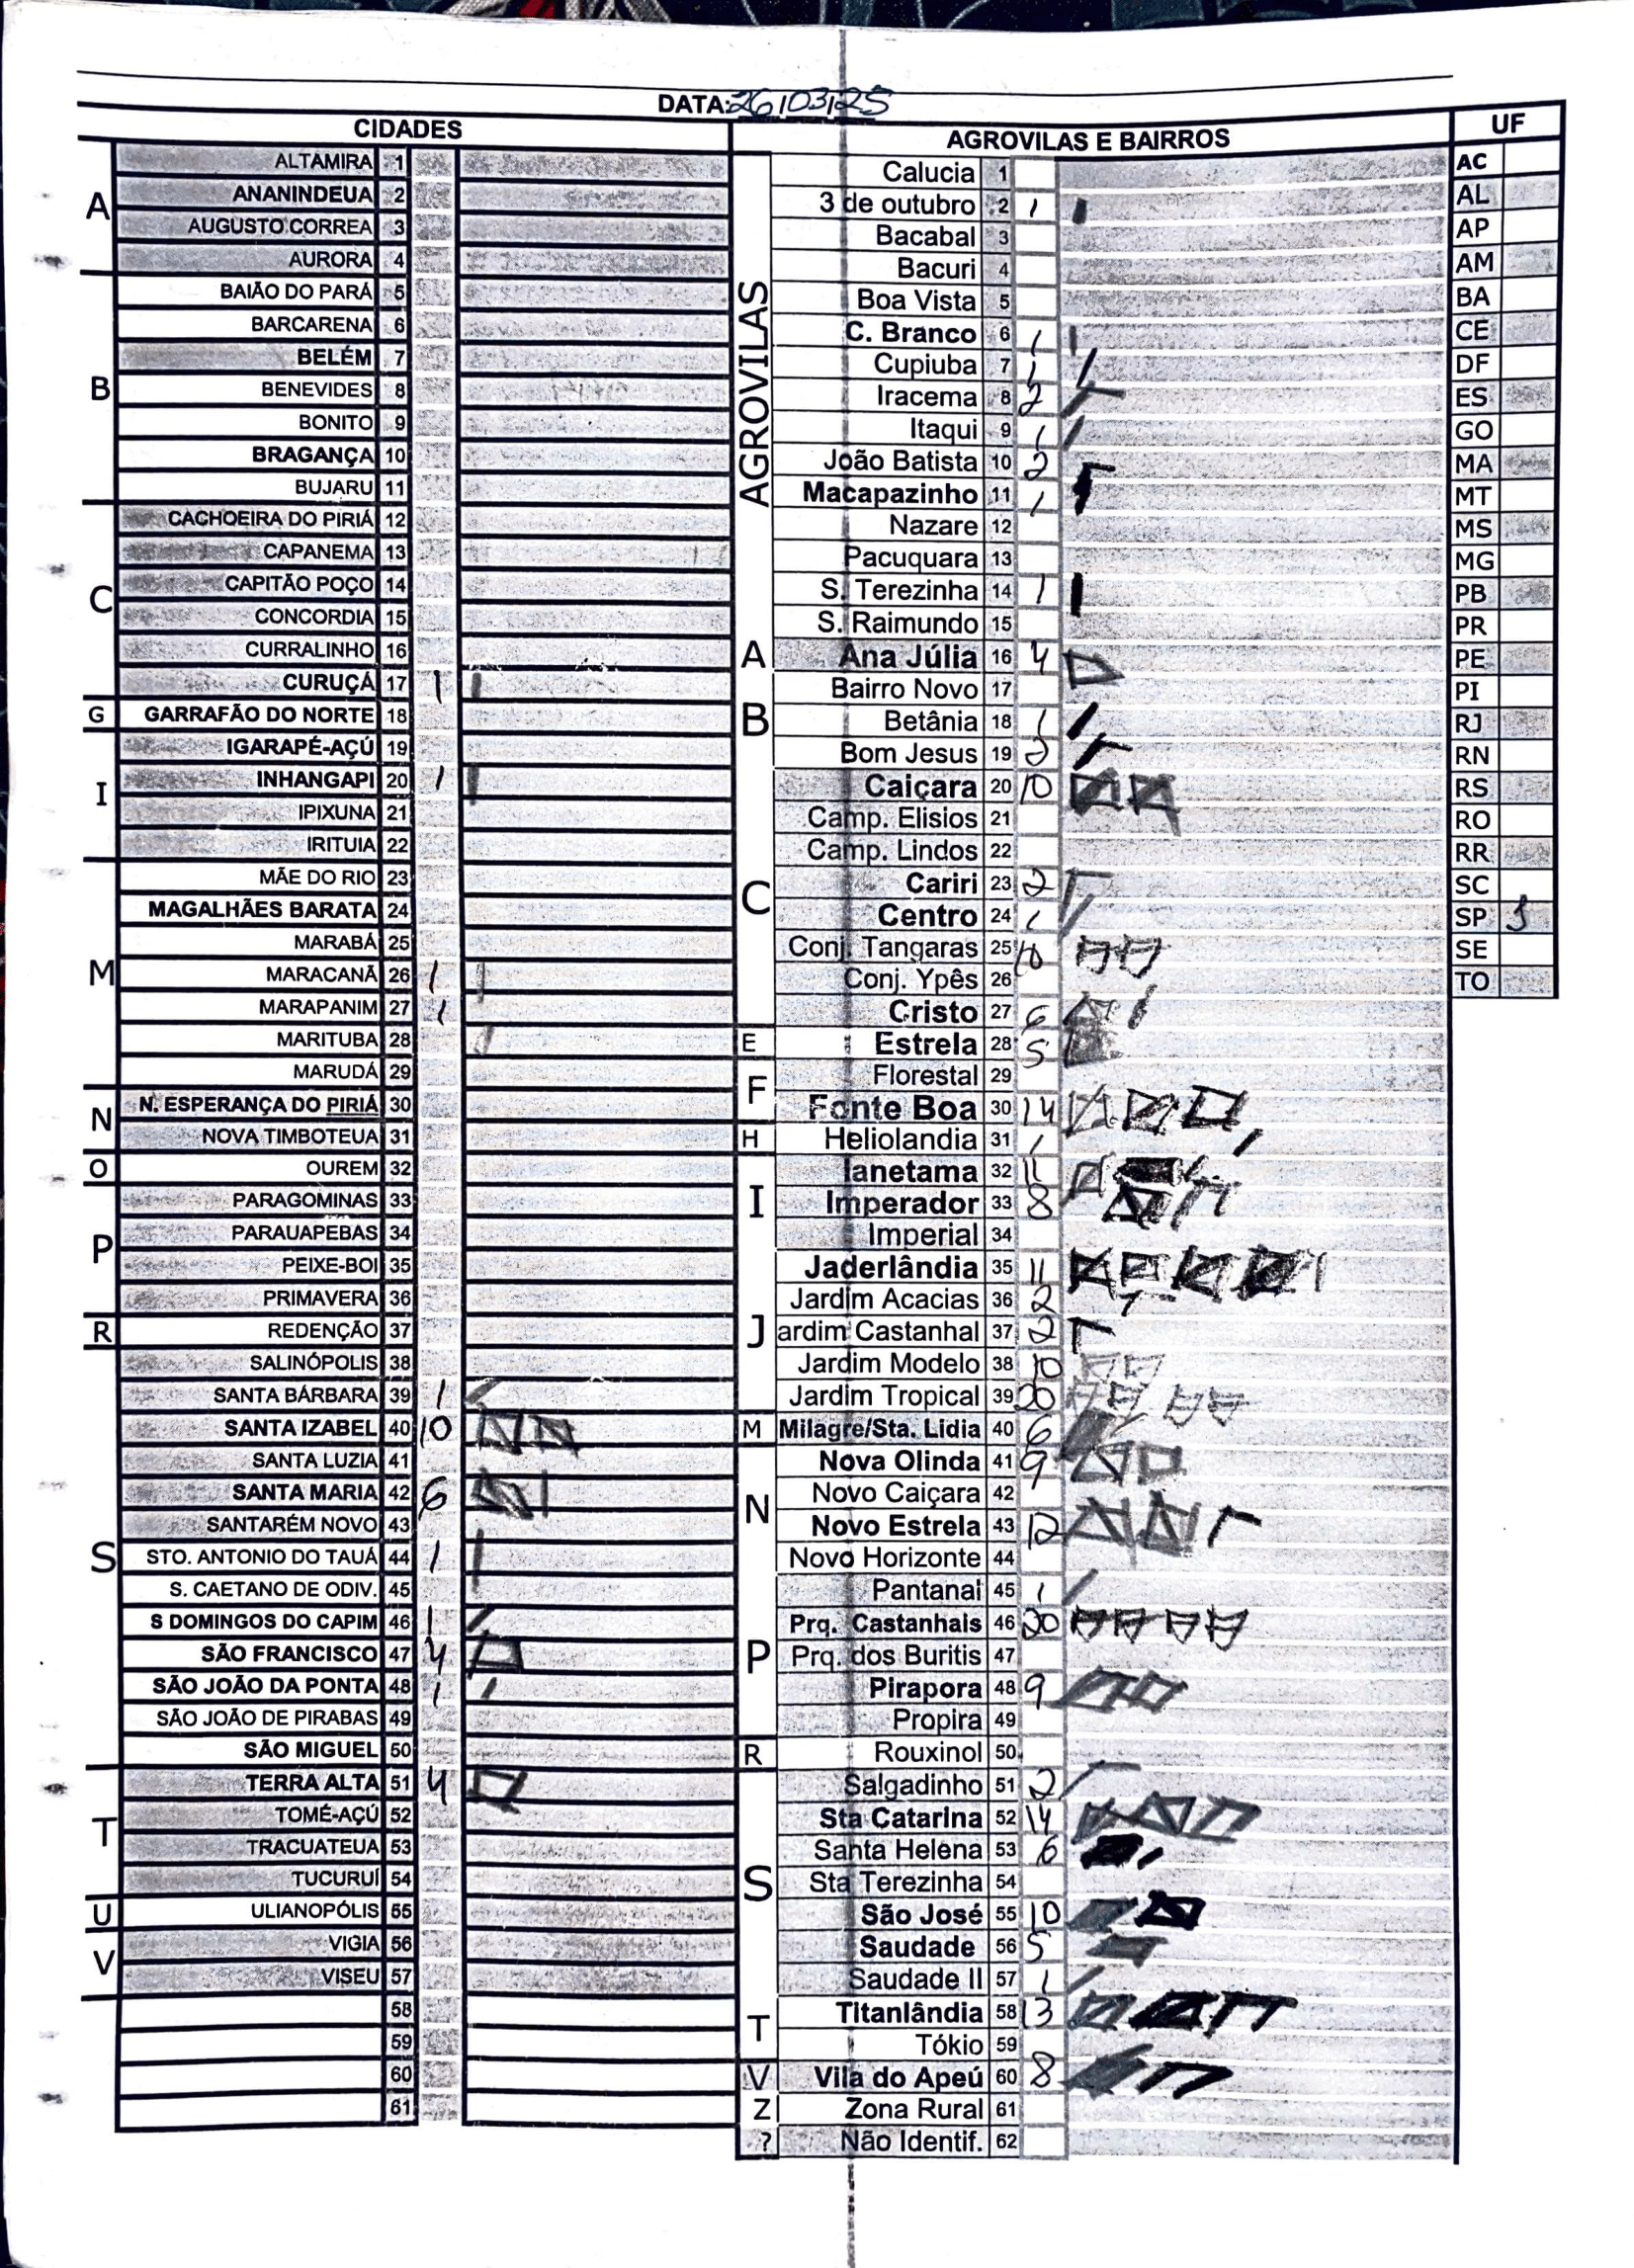 DATA: 26/03/25
CIDADES
A
ALTAMIRA 1
ANANINDEUA 2
AUGUSTO CORREA 3
AURORA 4
B
BAIÃO DO PARÁ 5
BARCARENA 6
BELÉM 7
BENEVIDES 8
BONITO 9
BRAGANÇA 10
BUJARU 11
C
CACHOEIRA DO PIRIÁ 12
CAPANEMA 13
CAPITÃO POÇO 14
CONCORDIA 15
CURRALINHO 16
CURUÇÁ 17 1
G
GARRAFÃO DO NORTE 18
I
IGARAPÉ-AÇÚ 19
INHANGAPI 20 1
IPIXUNA 21
IRITUIA 22
M
MÃE DO RIO 23
MAGALHÃES BARATA 24
MARABÁ 25
MARACANÃ 26 1
MARAPANIM 27 1
MARITUBA 28
MARUDÁ 29
N
N. ESPERANÇA DO PIRIÁ 30
NOVA TIMBOTEUA 31
O
OUREM 32
P
PARAGOMINAS 33
PARAUAPEBAS 34
PEIXE-BOI 35
PRIMAVERA 36
R
REDENÇÃO 37
S
SALINÓPOLIS 38
SANTA BÁRBARA 39 1
SANTA IZABEL 40 10
SANTA LUZIA 41
SANTA MARIA 42 6
SANTARÉM NOVO 43
STO. ANTONIO DO TAUÁ 44 1
S. CAETANO DE ODIV. 45
S DOMINGOS DO CAPIM 46 1
SÃO FRANCISCO 47 4
SÃO JOÃO DA PONTA 48 1
SÃO JOÃO DE PIRABAS 49
SÃO MIGUEL 50
T
TERRA ALTA 51 4
TOMÉ-AÇÚ 52
TRACUATEUA 53
TUCURUÍ 54
U
ULIANOPÓLIS 55
V
VIGIA 56
VISEU 57
58
59
60
61
AGROVILAS E BAIRROS
AGROVILAS
Calucia 1
3 de outubro 2 1
Bacabal 3
Bacuri 4
Boa Vista 5
C. Branco 6 1
Cupiuba 7 1
Iracema 8 2
Itaqui 9 1
João Batista 10 2
Macapazinho 11 1
Nazare 12
Pacuquara 13
S. Terezinha 14 1
S. Raimundo 15
A
Ana Júlia 16 4
B
Bairro Novo 17
Betânia 18 1
Bom Jesus 19 2
C
Caiçara 20 10
Camp. Elisios 21
Camp. Lindos 22
Cariri 23 2
Centro 24 1
Conj. Tangaras 25 10
Conj. Ypês 26
Cristo 27 6
E
Estrela 28 5
F
Florestal 29
Fonte Boa 30 14
H
Heliolandia 31 1
I
Ianetama 32 11
Imperador 33 8
Imperial 34
J
Jaderlândia 35 11
Jardim Acacias 36 2
ardim Castanhal 37 2
Jardim Modelo 38 10
Jardim Tropical 39 20
M
Milagre/Sta. Lidia 40 6
N
Nova Olinda 41 9
Novo Caiçara 42
Novo Estrela 43 12
Novo Horizonte 44
P
Pantanal 45 1
Prq. Castanhais 46 20
Prq. dos Buritis 47
Pirapora 48 9
Propira 49
R
Rouxinol 50
S
Salgadinho 51 2
Sta Catarina 52 14
Santa Helena 53 6
Sta Terezinha 54
São José 55 10
Saudade 56 5
Saudade II 57 1
T
Titanlândia 58 13
Tókio 59
V
Vila do Apeú 60 8
Z
Zona Rural 61
?
Não Identif. 62
UF
AC
AL
AP
AM
BA
CE
DF
ES
GO
MA
MT
MS
MG
PB
PR
PE
PI
RJ
RN
RS
RO
RR
SC
SP
SE
TO